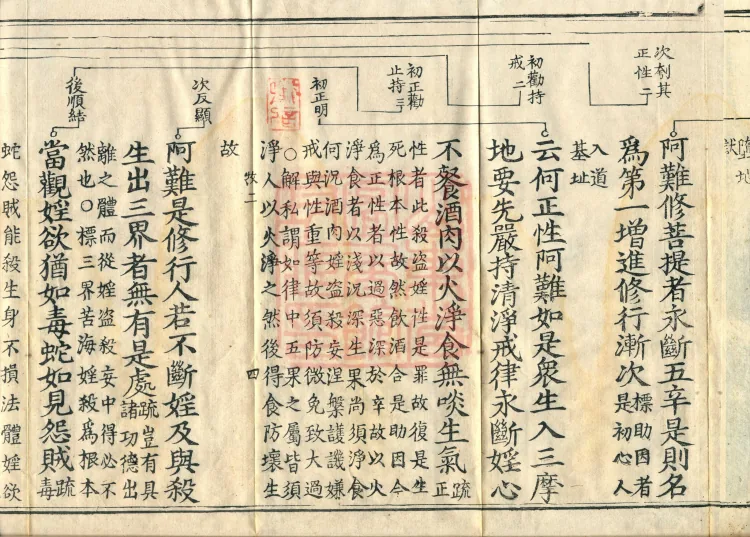 墮地
次刳其
正性二
阿難修菩提者永斷五辛是則名
爲第一增進修行漸次
標助因者
是初心人
入道
基址
初勸持
戒二
云何正性阿難如是衆生入三摩
地要先嚴持清淨戒律永斷婬心
初正勸
止持三
初正明
不餐酒肉以火淨食無啖生氣
疏
正
性者此殺盜婬性是罪故復是生
死根本性故然飲酒合是助因今
爲正性者以過惡深於辛故以火
淨食者以淺況深生果尚須淨食
何況酒肉婬盜殺妄涅槃護譏嫌
戒與性重等故須防微免致大過
○解私謂如律中五果之屬皆須
淨人以火淨之然後得食防壞生
牧二
四
故
次反顯
阿難是修行人若不斷婬及與殺
生出三界者無有是處
疏豈有具
諸功德出
離之體而從婬盜殺妄中得必不
然也○標三界苦海婬殺爲根本
後順結
當觀婬欲猶如毒蛇如見怨賊
疏
毒
蛇怨賊能殺生身不損法體婬欲